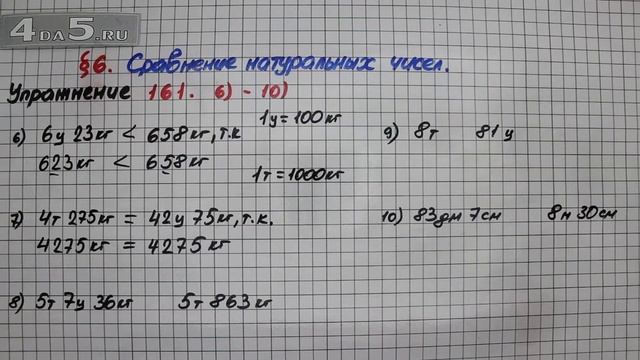 4DA5.RU
§6. Сравнение натуральных чисел.
Упражнение 161. 6) - 10)
6) 6ц 23кг < 658кг, т.к
1ц = 100кг
623кг < 658кг
1т = 1000кг
7) 4т 275кг = 42ц 75кг, т.к.
4275кг = 4275кг
8) 5т 7ц 36кг 5т 863кг
9) 8т 81ц
10) 83дм 7см 8м 30см